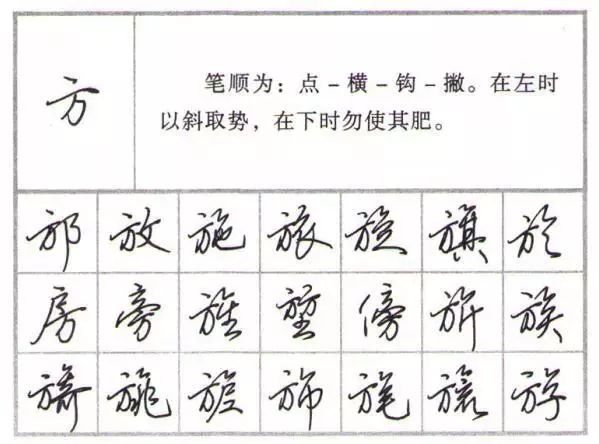 方
笔顺为：点－横－钩－撇。在左时
以斜取势，在下时勿使其肥。
邡 放 施 旅 旗 於
房 旁 旌 堃 傍 斨 族
旖 旐 旆 旄 斿